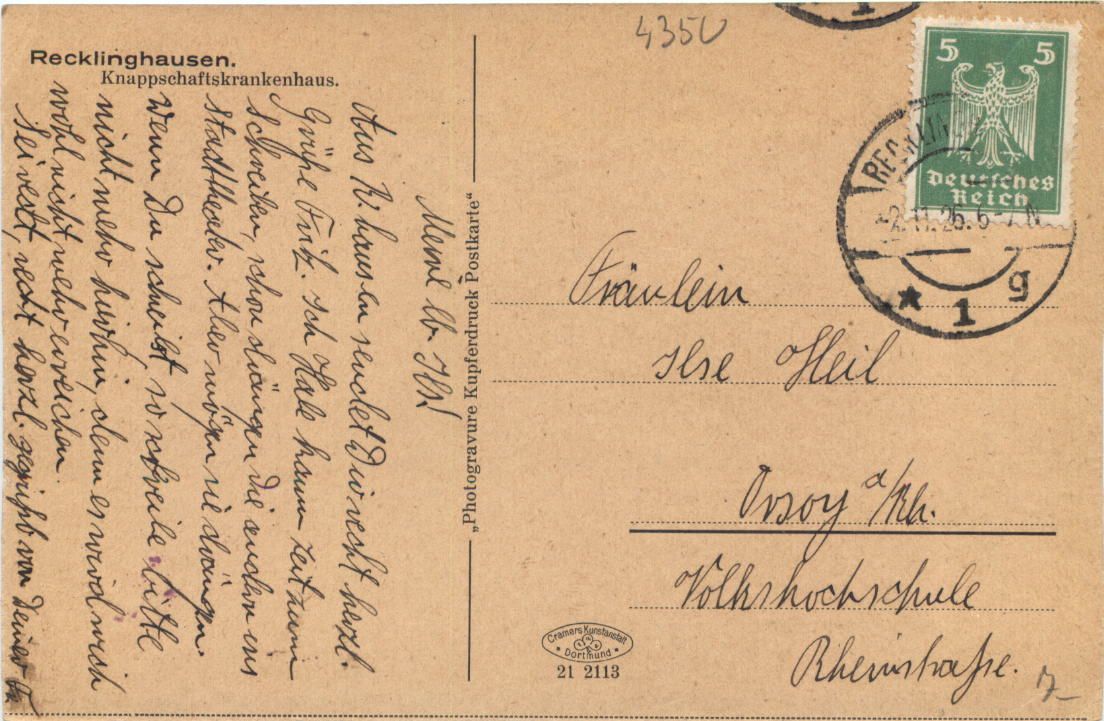 4350
Recklinghausen.
Knappschaftskrankenhaus.
5 5
Deutsches
Reich
RECKLING
2.11.26. 6-7 N
* 1 g
1
Meine lb. Ilse!
Aus R.hausen sendet Dir recht herzl.
Grüße Fritz. Ich habe kaum Zeit zum
Schreiben, schon drängen die andern ins
Stadttheater. Aber mögen sie drängen.
Wenn Du schreibst, so schreibe bitte
nicht mehr hierhin, denn es wird mich
wohl nicht mehr erreichen.
Sei recht, recht herzl. gegrüßt von Deiner
„Photogravure Kupferdruck Postkarte“
Fräulein
Ilse Heil
Orsoy a/Rh.
Volkshochschule
Rheinstraße.
Cramers Kunstanstalt
* Dortmund *
21 2113
7-